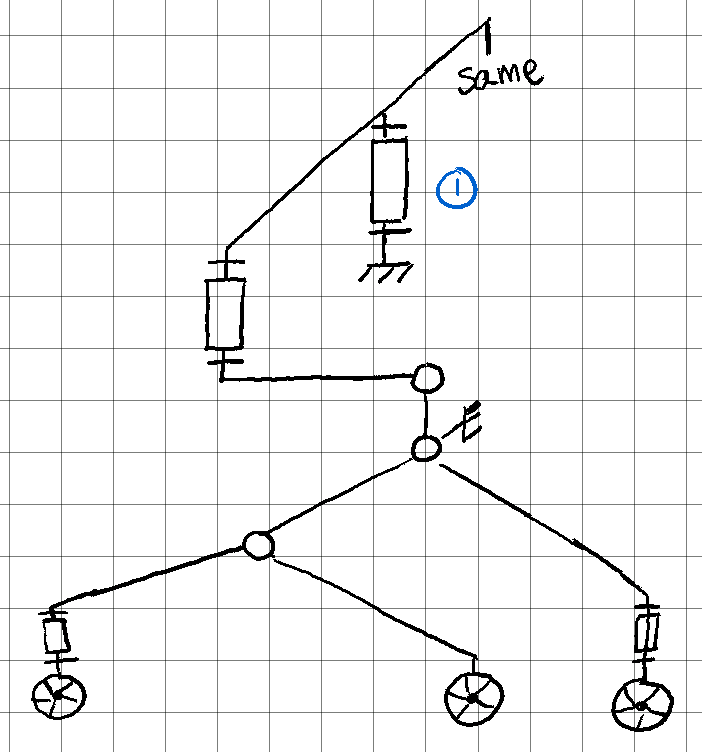 same
1